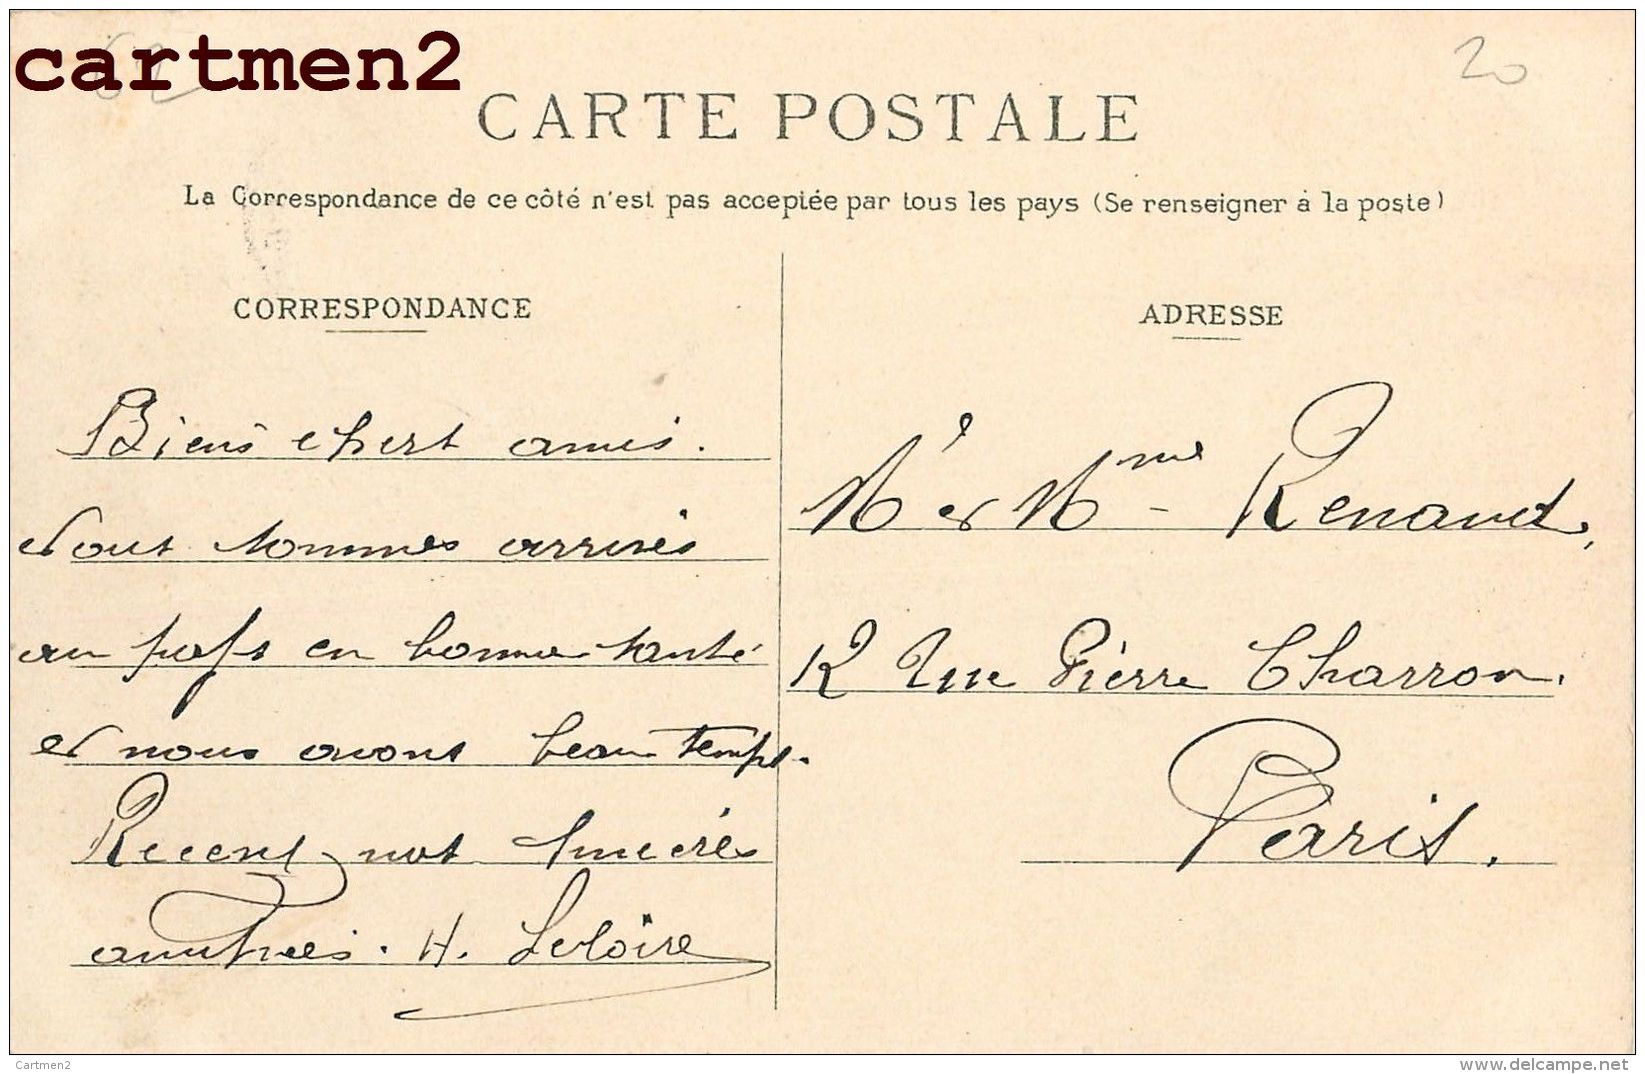 cartmen2
62
20
CARTE POSTALE
La Correspondance de ce côté n'est pas acceptée par tous les pays (Se renseigner à la poste)
CORRESPONDANCE
Biens chers amis.
nous sommes arrivés
au pays en bonne santé
et nous avons beau temps.
Recevez nos sincères
amitiées. H. Leloire
ADRESSE
Mr et Mme Renaud,
12 Rue Pierre Charron.
Paris.
Cartmen2
delcampe.net